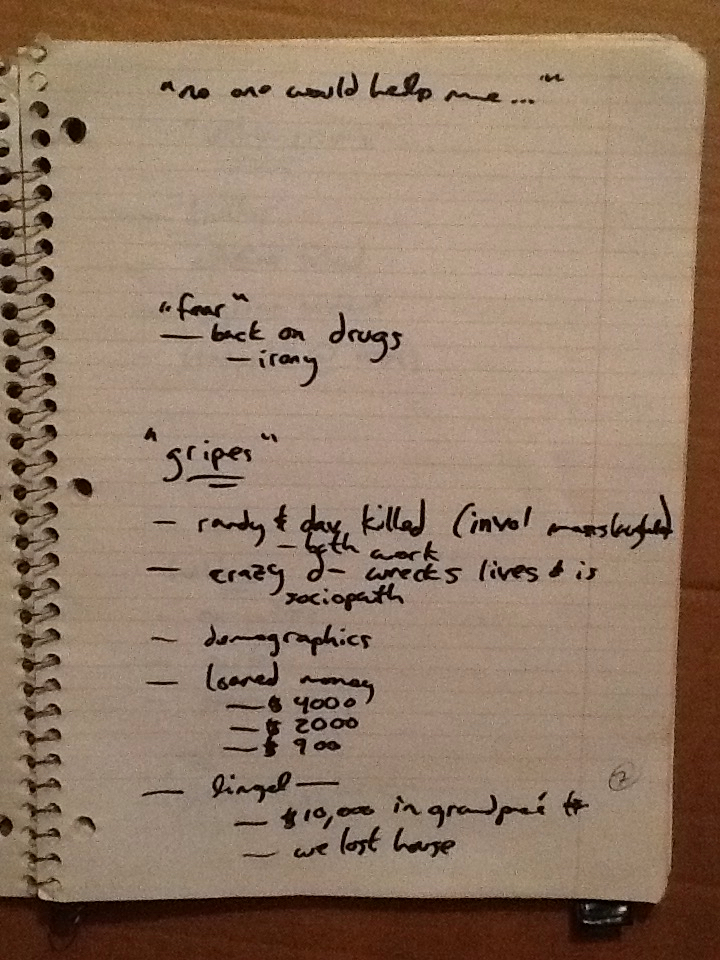 "no one would help me..."
"fear"
— back on drugs
— irony
"gripes"
— randy & dav killed (invol manslaughter)
— both work
— crazy d — wrecks lives & is
sociopath
— demographics
— loaned money
— $ 4000
— $ 2000
— $ 900
— lingel —
— $10,000 in grandpa's
— we lost house